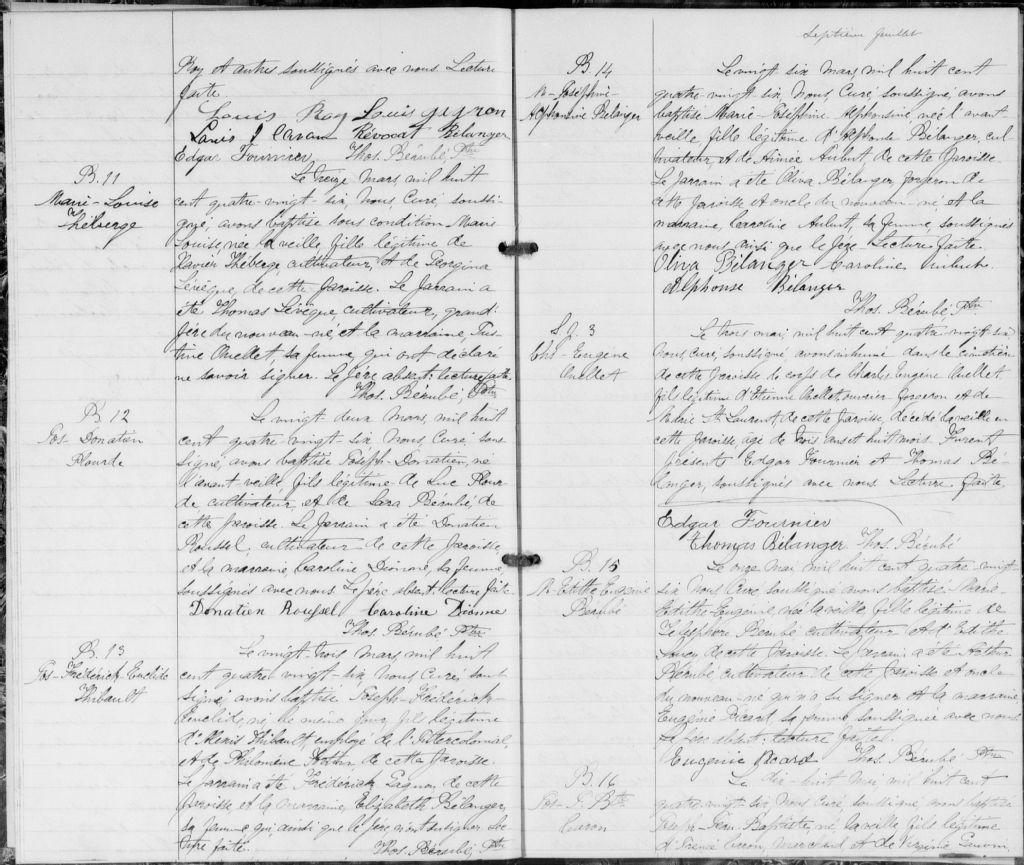 Roy et autres soussignés avec nous Lecture
faite.
Louis Roy Louis gyron
Louis J Caron Révocat Bélanger
Edgar Fournier Thos. Bérubé, Ptre
B. 11
Marie-Louise
Théberge
Le treize mars, mil huit
cent quatre-vingt six, Nous, Curé, soussi-
gné, avons baptisé sous condition Marie
Louise, née la veille, fille légitime de
Xavier Théberge cultivateur, et de Georgina
Lévêque, de cette Paroisse. Le Parrain a
été Thomas Lévêque, cultivateur, grand-
père du nouveau-né, et la marraine, Jus-
tine Ouellet, sa femme, qui ont déclaré
ne savoir signer. Le père absent: lecture faite.
Thos. Bérubé, Ptre
B. 12
Jos. Donatien
Plourde
Le vingt deux mars, mil huit
cent quatre-vingt six Nous, Curé, sous-
signé, avons baptisé Joseph-Donatien, né
l'avant veille, fils légitime de Luc Plour-
de cultivateur, et de Sara Bérubé, de
cette Paroisse. Le Parrain a été Donatien
Roussel, cultivateur de cette Paroisse
et la marraine, Caroline Dionne, sa femme,
soussignés avec nous. Le père absent. lecture faite.
Donatien Roussel Caroline Dionne
Thos. Bérubé Ptre
B. 13
Jos-Frédérich-Euclide
Thibault
Le vingt-trois mars, mil huit
cent quatre vingt six Nous Curé, sous
signé, avons baptisé Joseph-Frédérich-
Euclide, né, le même jour, fils légitime
d'Alexis Thibault, employé de l'Intercolonial,
et de Philomène de cette Paroisse.
Le parrain a été Frédérich Gagnon, de cette
Paroisse, et la marraine, Elizabeth Bélanger,
sa femme qui, ainsi que le père, n'ont su signer. Lec
ture faite. Thos. Bérubé, Ptre
Septième feuillet
B. 14
M-Joséphine-
Alphonsine Bélanger
Le vingt six mars, mil huit cent
quatre-vingt six, Nous, Curé, soussigné, avons
baptisé Marie-Joséphine-Alphonsine, née l'avant
veille, fille légitime d'Alphonse Bélanger, cul
tivateur, et de Aimée Aubut, de cette Paroisse.
Le Parrain a été Oliva Bélanger, forgeron de
cette Paroisse et oncle du nouveau-né, et la
marraine, Caroline Aubut, sa femme, soussignés
avec nous ainsi que le père. Lecture faite.
Oliva Bélanger Caroline Aubut
Alphonse Bélanger
Thos. Bérubé, Ptre
S. g. 3
Chs-Eugène
Ouellet
Le trois mai, mil huit cent quatre-vingt six
Nous, Curé, soussigné, avons inhumé dans le cimetière
de cette Paroisse le corps de Charles Eugène Ouellet,
fils légitime d'Etienne Ouellet, ouvrier forgeron et de
Marie St. Laurent, de cette Paroisse, décédé la veille en
cette Paroisse, âgé de trois ans et huit mois. Furent
présents Edgar Fournier et Thomas Bé-
langer, soussignés avec nous Lecture faite.
Edgar Fournier
Thomas Bélanger Thos. Bérubé
B. 15
M-Edithe Eugénie
Bérubé
Le onze mai mil huit cent quatre-vingt
six Nous Curé soussigné avons baptisé Marie
Edithe-Eugénie, née la veille fille légitime de
Télesphore Bérubé cultivateur et d'Edithe
de cette Paroisse. Le parrain a été Arthur
Bérubé cultivateur de cette Paroisse et oncle
du nouveau-né qui n'a su signer et la marraine
Eugénie Picard, sa femme soussignée avec nous
Le père absent. Lecture faite.
Eugenie Picard Thos. Bérubé Ptre
B. 16
Jos-J. Bte
Caron
Le dix-huit mai, mil huit cent
quatre-vingt six Nous Curé, soussigné, avons baptisé
Joseph-Jean-Baptiste, né, la veille, fils légitime
d'Irénée Caron, marchand et de Virginie